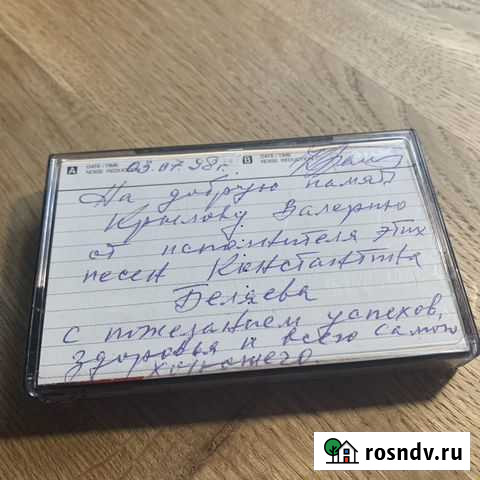 A DATE/TIME NOISE REDUCTION 03.07.98г. B DATE/TIME NOISE REDUCTION
На добрую память
Крылову Валерию
от исполнителя этих
песен Константина
Беляева
с пожеланием успехов,
здоровья и всего самого
хорошего
rosndv.ru